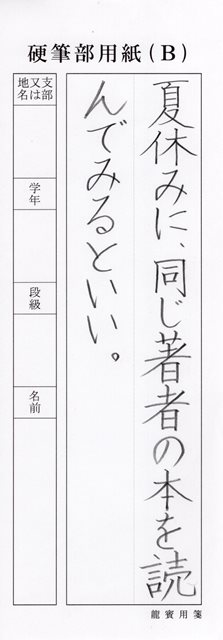 硬筆部用紙(B)
夏休みに、同じ著者の本を読
んでみるといい。
支部
又は
地名
学年
段級
名前
龍賓用箋